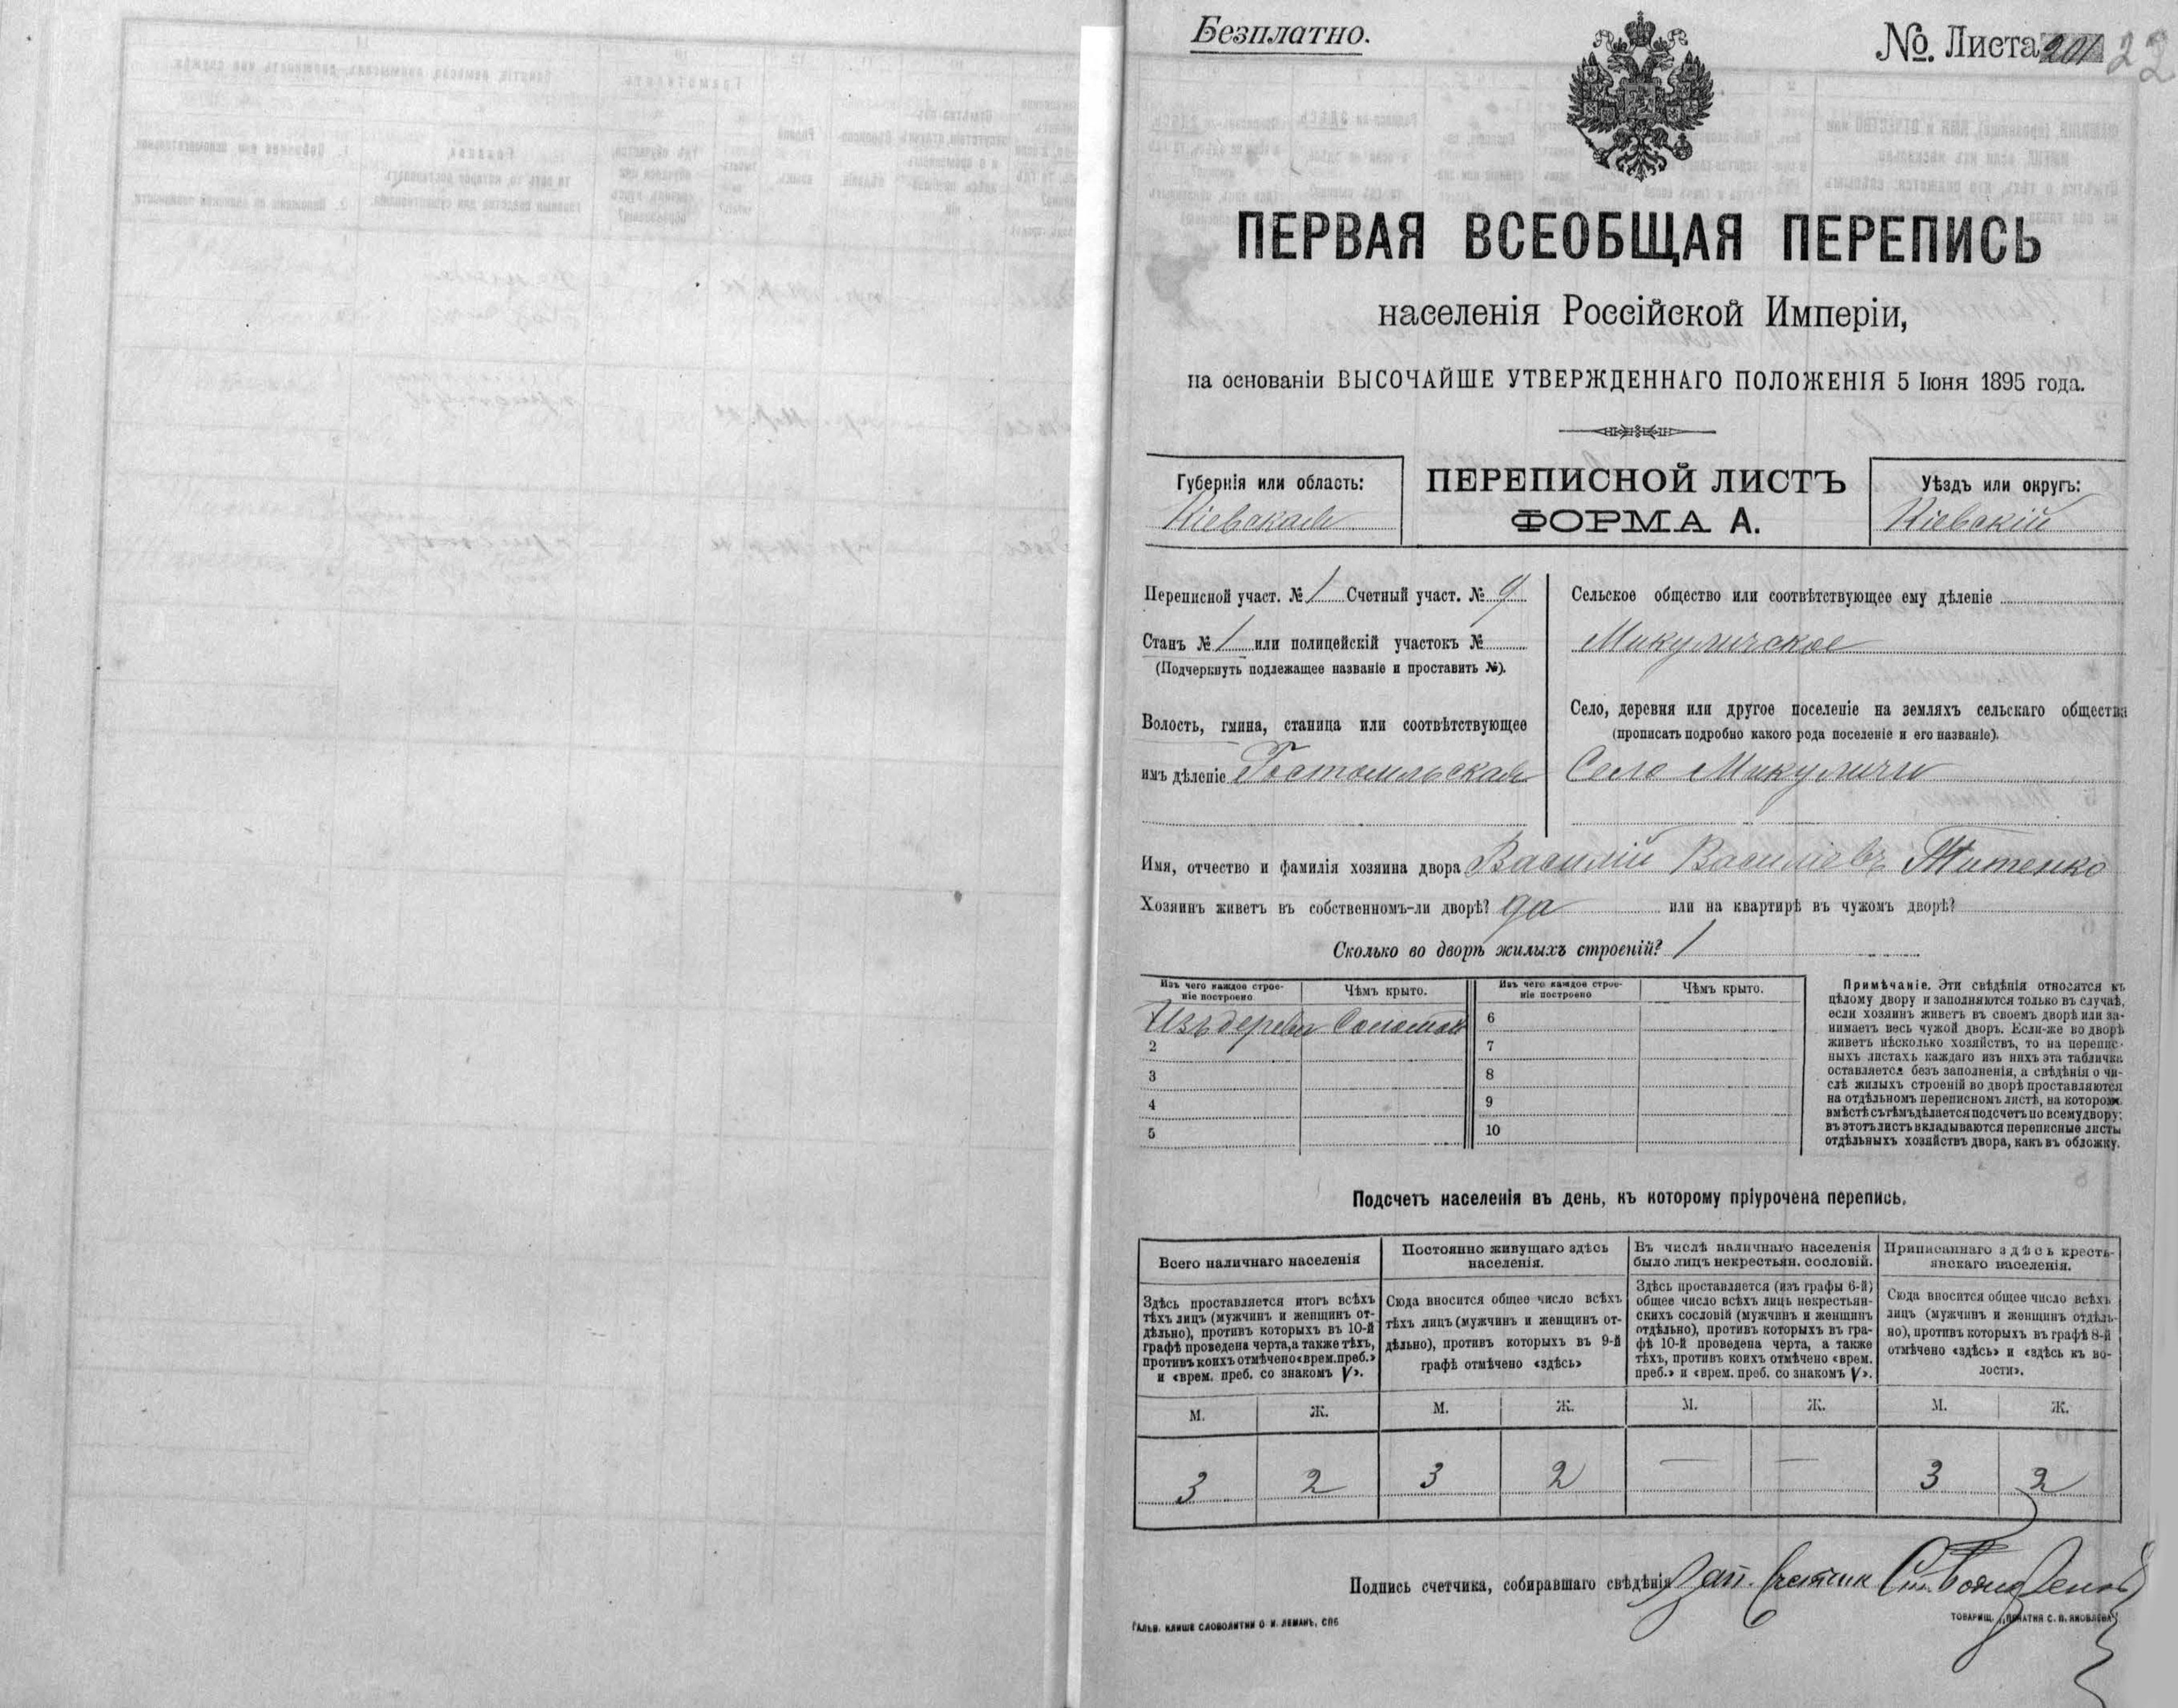 Безплатно.
№. Листа 201 22
ПЕРВАЯ ВСЕОБЩАЯ ПЕРЕПИСЬ
населенія Россійской Имперіи,
на основаніи ВЫСОЧАЙШЕ УТВЕРЖДЕННАГО ПОЛОЖЕНІЯ 5 Іюня 1895 года.
Губернія или область:
Кіевская
ПЕРЕПИСНОЙ ЛИСТЪ
ФОРМА А.
Уѣздъ или округъ:
Кіевскій
Переписной участ. № 1 Счетный участ. № 9
Станъ № 1 или полицейскій участокъ №
(Подчеркнуть подлежащее названіе и проставить №).
Волость, гмина, станица или соотвѣтствующее
имъ дѣленіе Гостомльская
Сельское общество или соотвѣтствующее ему дѣленіе
Микуличское
Село, деревня или другое поселеніе на земляхъ сельскаго общества
(прописать подробно какого рода поселеніе и его названіе).
Село Микуличи
Имя, отчество и фамилія хозяина двора Василій Василіевъ Титенко
Хозяинъ живетъ въ собственномъ-ли дворѣ? да или на квартирѣ въ чужомъ дворѣ?
Сколько во дворѣ жилыхъ строеній? 1
Изъ чего каждое строе-
ніе построено
Чѣмъ крыто.
Изъ чего каждое строе-
ніе построено
Чѣмъ крыто.
Изъ дерева Соломой 6
2 7
3 8
4 9
5 10
Примѣчаніе. Эти свѣдѣнія относятся къ
цѣлому двору и заполняются только въ случаѣ,
если хозяинъ живетъ въ своемъ дворѣ или за-
нимаетъ весь чужой дворъ. Если-же во дворѣ
живетъ нѣсколько хозяйствъ, то на перепис-
ныхъ листахъ каждаго изъ нихъ эта табличка
оставляется безъ заполненія, а свѣдѣнія о чи-
слѣ жилыхъ строеній во дворѣ проставляются
на отдѣльномъ переписномъ листѣ, на которомъ
вмѣстѣ съ тѣмъ дѣлается подсчетъ по всему двору;
въ этотъ листъ вкладываются переписные листы
отдѣльныхъ хозяйствъ двора, какъ въ обложку.
Подсчетъ населенія въ день, къ которому пріурочена перепись.
Всего наличнаго населенія
Здѣсь проставляется итогъ всѣхъ
тѣхъ лицъ (мужчинъ и женщинъ от-
дѣльно), противъ которыхъ въ 10-й
графѣ проведена черта, а также тѣхъ,
противъ коихъ отмѣчено «врем. преб.»
и «врем. преб. со знакомъ V».
Постоянно живущаго здѣсь
населенія.
Сюда вносится общее число всѣхъ
тѣхъ лицъ (мужчинъ и женщинъ от-
дѣльно), противъ которыхъ въ 9-й
графѣ отмѣчено «здѣсь»
Въ числѣ наличнаго населенія
было лицъ некрестьян. сословій.
Здѣсь проставляется (изъ графы 6-й)
общее число всѣхъ лицъ некрестьян-
скихъ сословій (мужчинъ и женщинъ
отдѣльно), противъ которыхъ въ гра-
фѣ 10-й проведена черта, а также
тѣхъ, противъ коихъ отмѣчено «врем.
преб.» и «врем. преб. со знакомъ V».
Приписаннаго здѣсь кресть-
янскаго населенія.
Сюда вносится общее число всѣхъ
лицъ (мужчинъ и женщинъ отдѣль-
но), противъ которыхъ въ графѣ 8-й
отмѣчено «здѣсь» и «здѣсь къ во-
лости».
М. Ж. М. Ж. М. Ж. М. Ж.
3 2 3 2 — — 3 2
Подпись счетчика, собиравшаго свѣдѣнія Зап. Счетчик
ГАЛЬВ. КЛИШЕ СЛОВОЛИТНИ О. И. ЛЕМАНЪ, СПБ
ТОВАРИЩ. „ПЕЧАТНЯ С. П. ЯКОВЛЕВА"